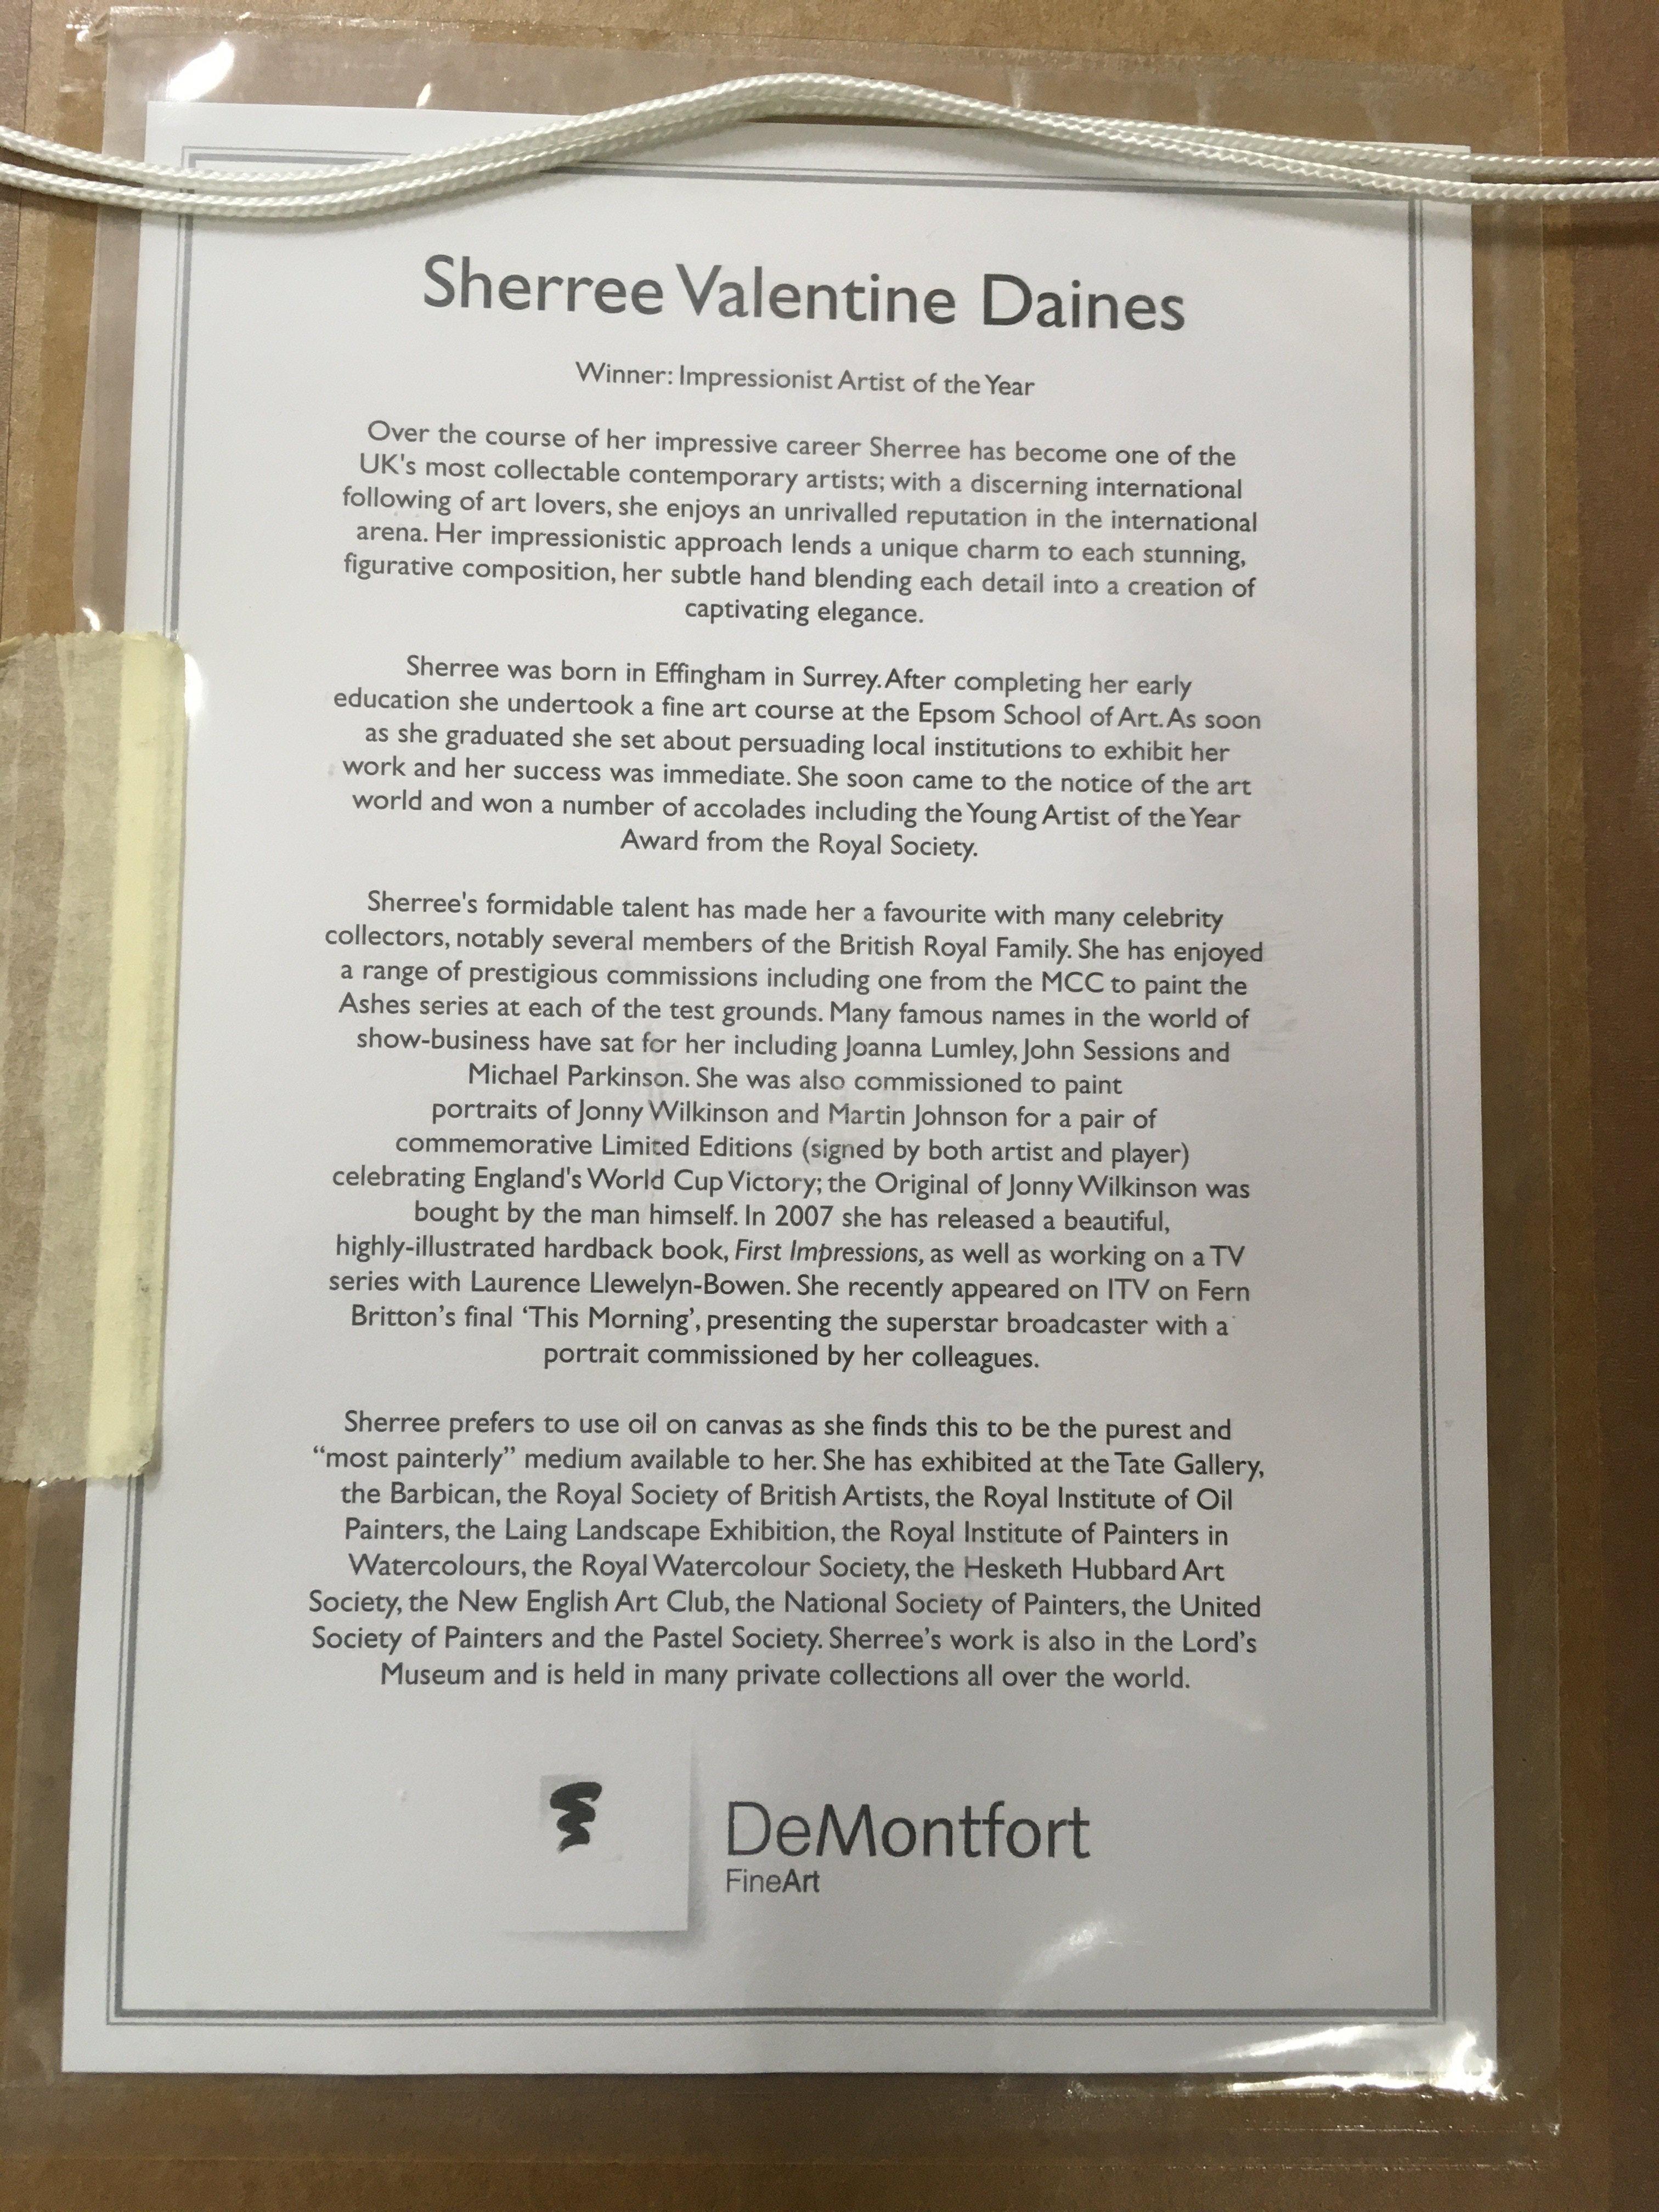 Sherree Valentine Daines
Winner: Impressionist Artist of the Year
Over the course of her impressive career Sherree has become one of the
UK's most collectable contemporary artists; with a discerning international
following of art lovers, she enjoys an unrivalled reputation in the international
arena. Her impressionistic approach lends a unique charm to each stunning,
figurative composition, her subtle hand blending each detail into a creation of
captivating elegance.
Sherree was born in Effingham in Surrey. After completing her early
education she undertook a fine art course at the Epsom School of Art. As soon
as she graduated she set about persuading local institutions to exhibit her
work and her success was immediate. She soon came to the notice of the art
world and won a number of accolades including the Young Artist of the Year
Award from the Royal Society.
Sherree's formidable talent has made her a favourite with many celebrity
collectors, notably several members of the British Royal Family. She has enjoyed
a range of prestigious commissions including one from the MCC to paint the
Ashes series at each of the test grounds. Many famous names in the world of
show-business have sat for her including Joanna Lumley, John Sessions and
Michael Parkinson. She was also commissioned to paint
portraits of Jonny Wilkinson and Martin Johnson for a pair of
commemorative Limited Editions (signed by both artist and player)
celebrating England's World Cup Victory; the Original of Jonny Wilkinson was
bought by the man himself. In 2007 she has released a beautiful,
highly-illustrated hardback book, First Impressions, as well as working on a TV
series with Laurence Llewelyn-Bowen. She recently appeared on ITV on Fern
Britton’s final ‘This Morning’, presenting the superstar broadcaster with a
portrait commissioned by her colleagues.
Sherree prefers to use oil on canvas as she finds this to be the purest and
“most painterly” medium available to her. She has exhibited at the Tate Gallery,
the Barbican, the Royal Society of British Artists, the Royal Institute of Oil
Painters, the Laing Landscape Exhibition, the Royal Institute of Painters in
Watercolours, the Royal Watercolour Society, the Hesketh Hubbard Art
Society, the New English Art Club, the National Society of Painters, the United
Society of Painters and the Pastel Society. Sherree’s work is also in the Lord’s
Museum and is held in many private collections all over the world.
DeMontfort
FineArt